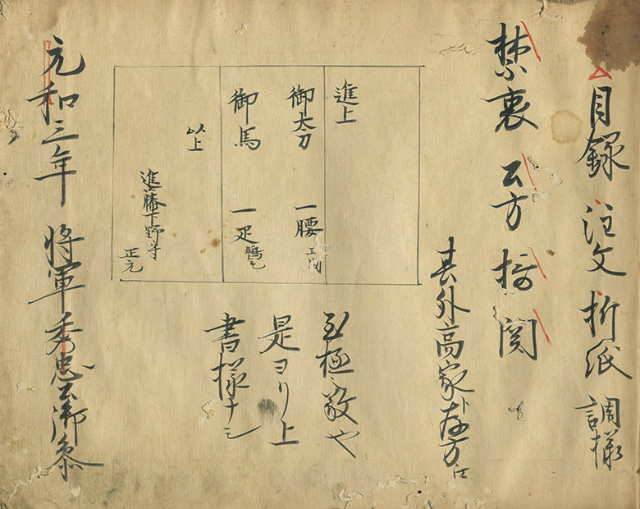 目録注文折紙調様
禁裏公方摂関
其外高家ト存方江
進上
御太刀 一腰
御馬 一疋
以上
進藤下野守
正元
至極ノ敬ヤ
是ヨリ上
書様ナシ
元和三年将軍秀忠公御参